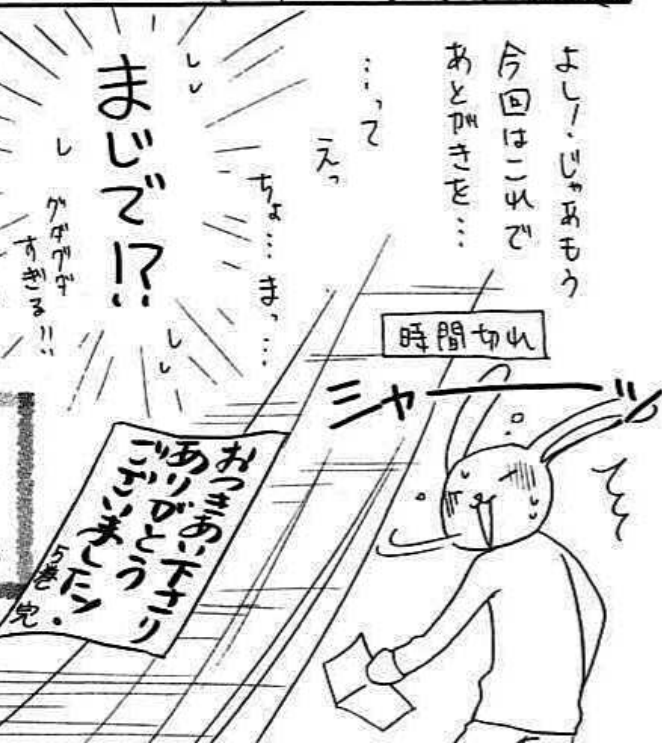 よし!じゃあもう
今回はこれで
あとがきを…
…って
えっ
ちょ…まっ…
まじで!?
グダグダ
すぎる!!
時間切れ
シャーッ
おつきあい下さり
ありがとう
ございましたン.
5巻 完